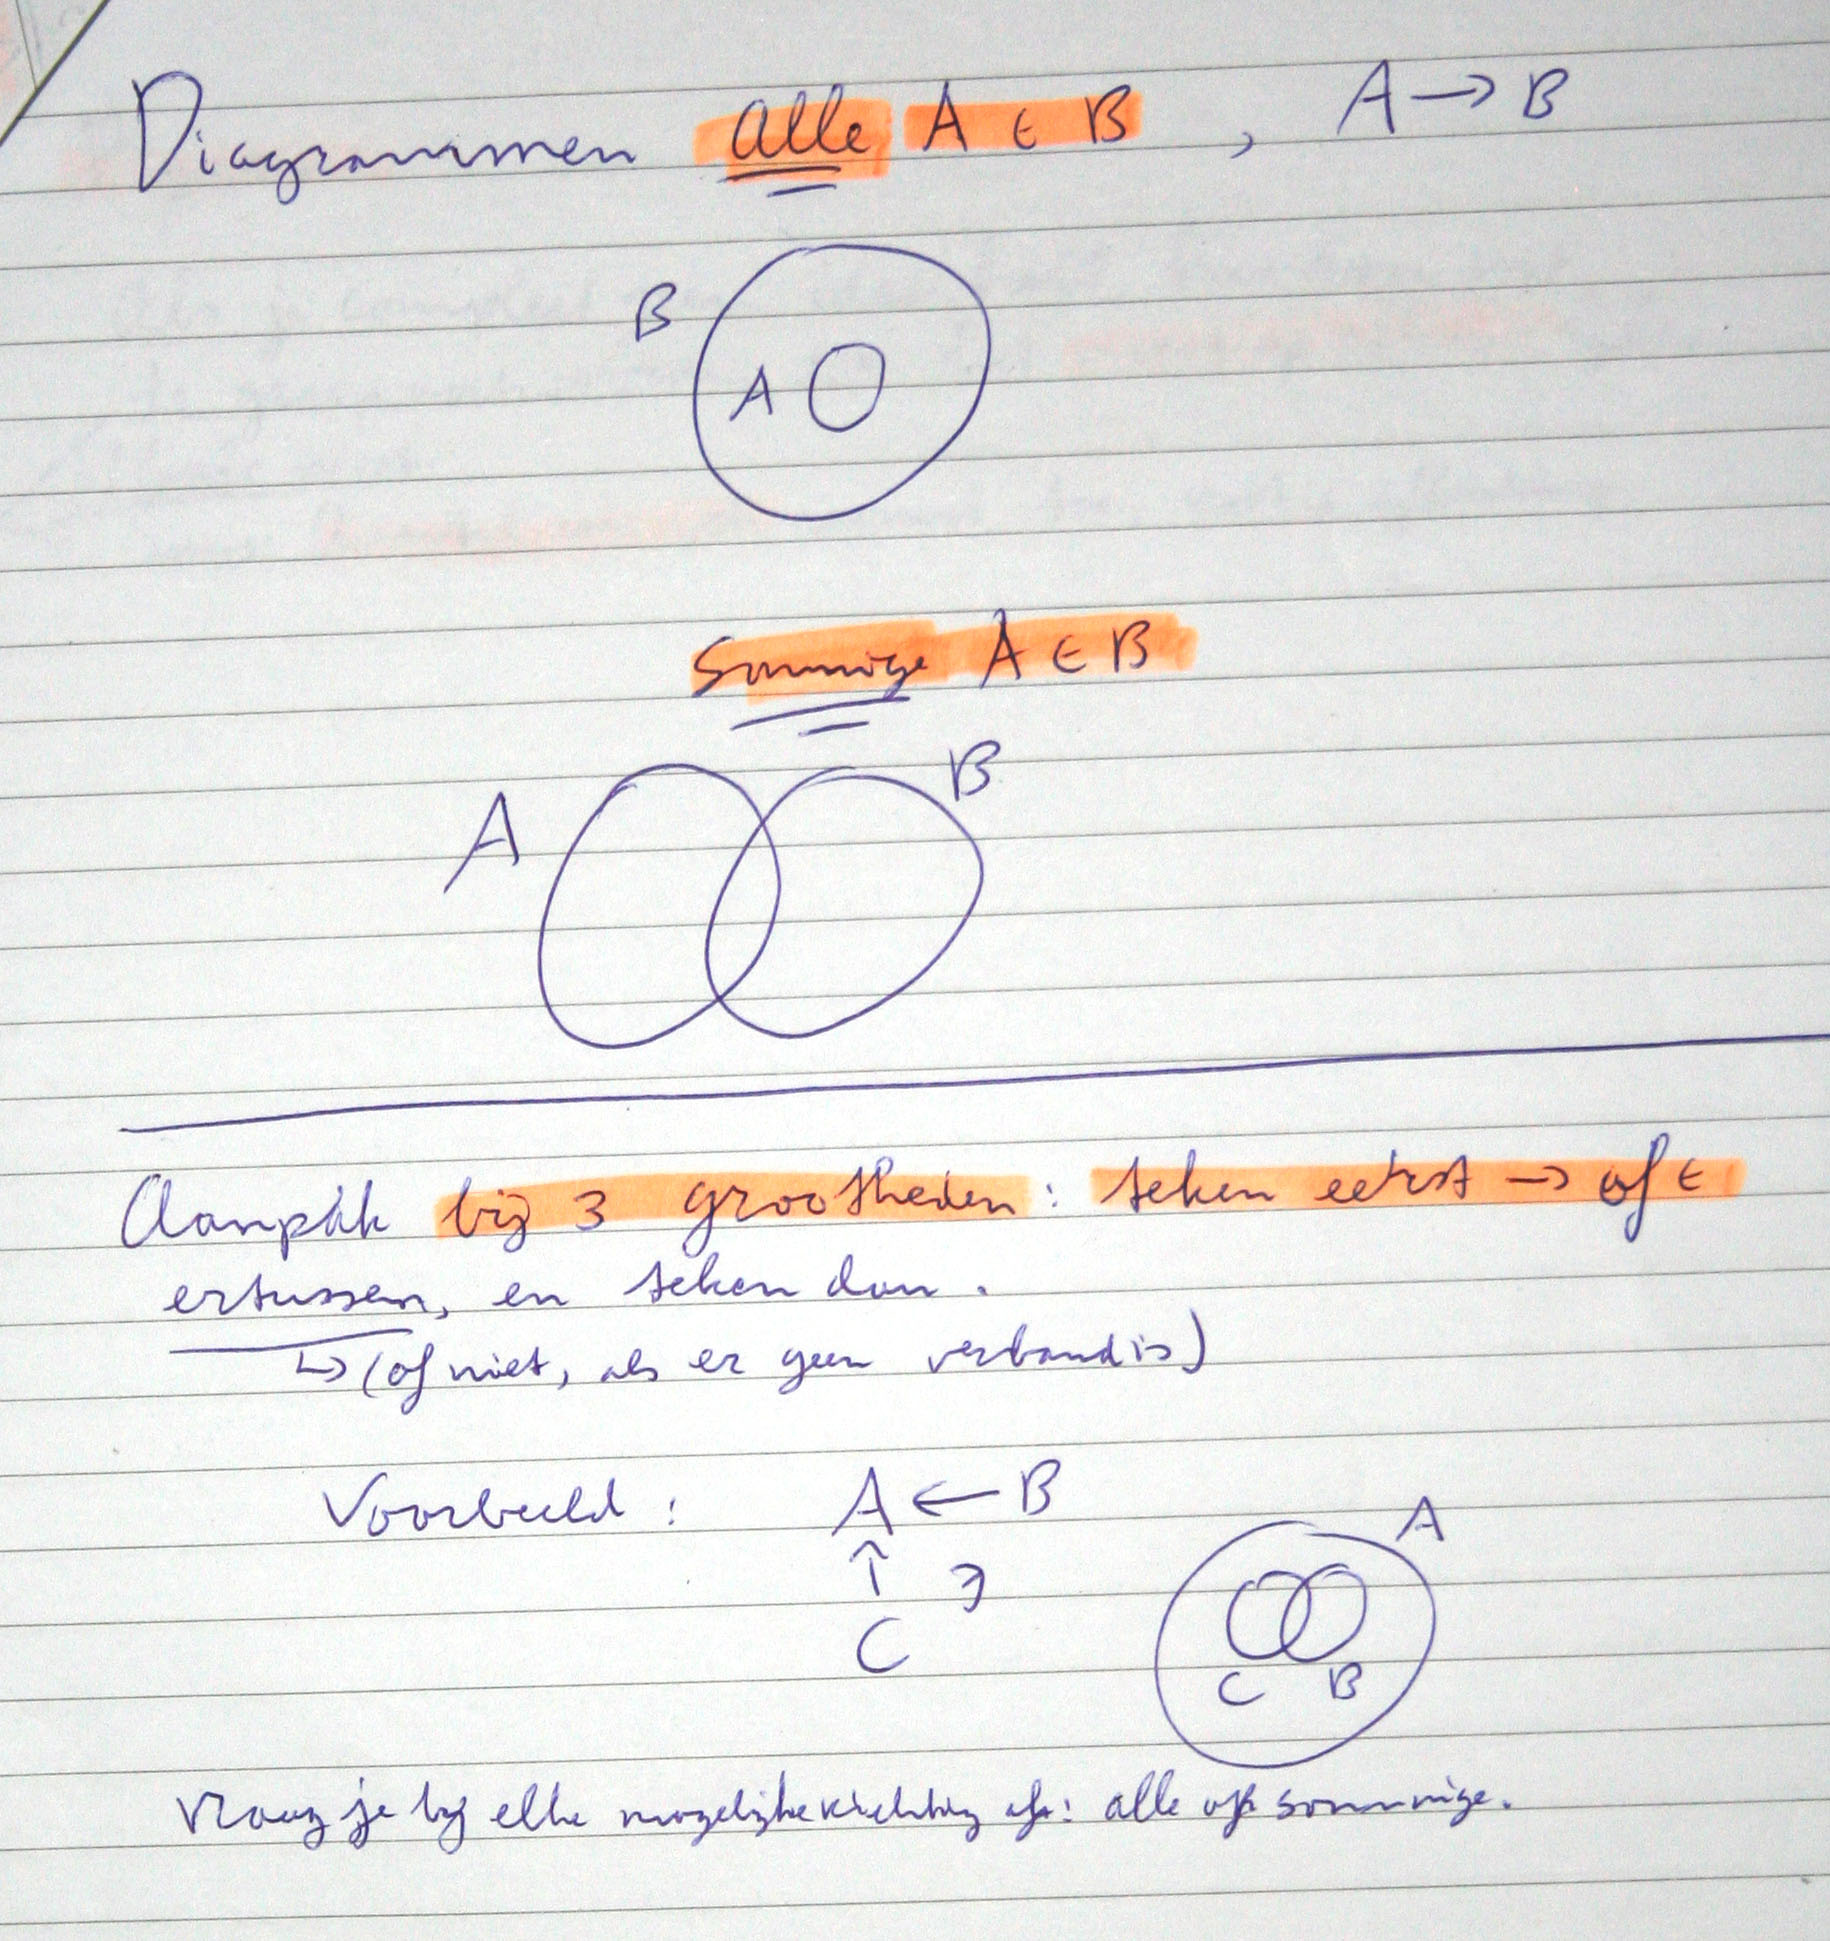 Diagrammen alle A ∈ B , A → B
B
A
Sommige A ∈ B
A B
Aanpak bij 3 grootheden : teken eerst → of ∈
ertussen, en teken dan .
↳ (of niet, als er geen verband is)
Voorbeeld : A ← B
A
↑ ∋
C
C B
Vraag je bij elke mogelijke richting af: alle of sommige.